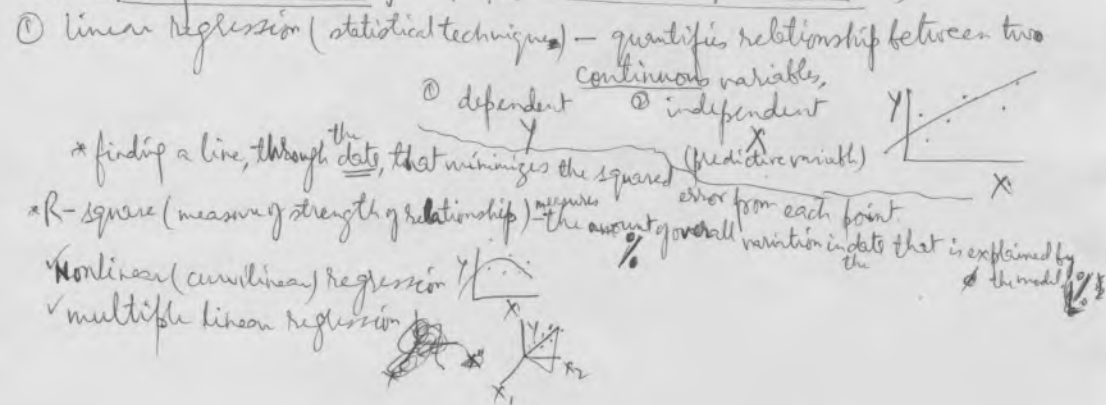 ① linear regression (statistical technique) – quantifies relationship between two
continuous variables,
① dependent ② independent
Y X
(predictive variable)
* finding a line, through the data, that minimizes the squared
error from each point
* R-square (measure of strength of relationship) – measures the amount of overall variation in the data that is explained by
% the model
✓ Nonlinear (curvilinear) regression
✓ multiple linear regression
Y
X
Y
X
Y
X1
X2